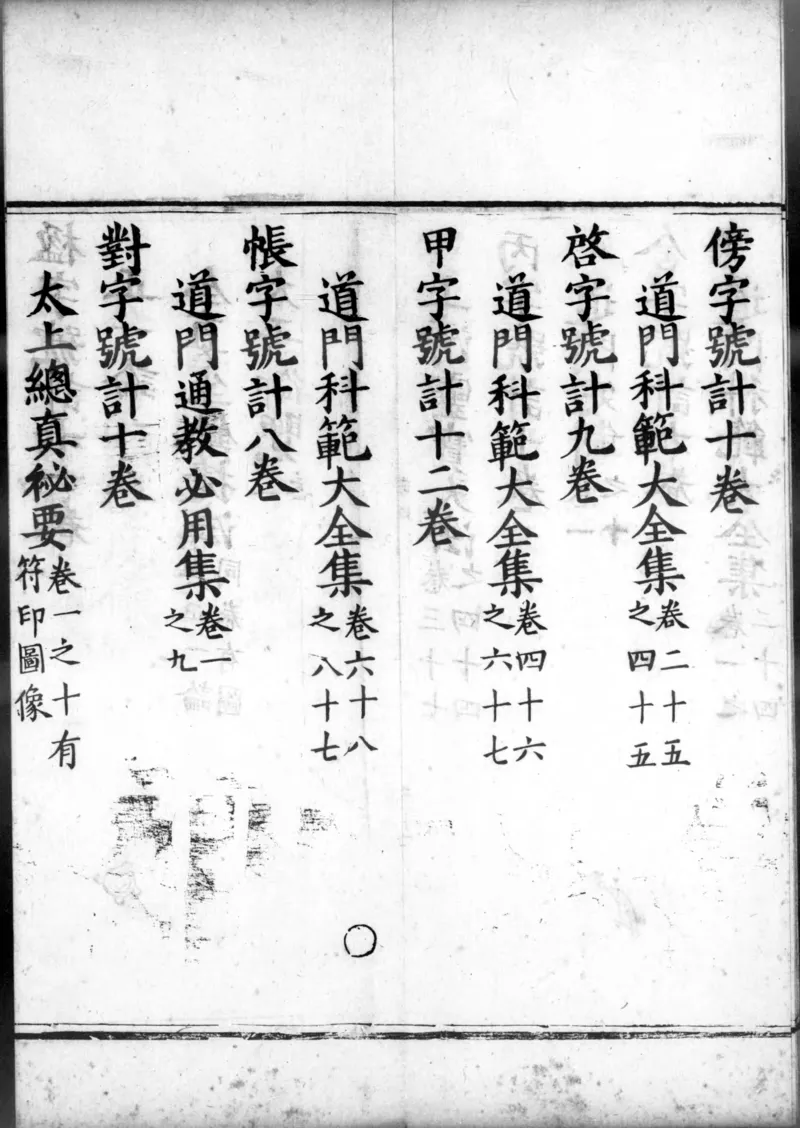 傍字號計十卷
道門科範大全集卷二十五之四十五
啓字號計九卷
道門科範大全集卷四十六之六十七
甲字號計十二卷
道門科範大全集卷六十八之八十七
帳字號計八卷
道門通教必用集卷一之九
對字號計十卷
太上總真祕要卷一之十有符印圖像